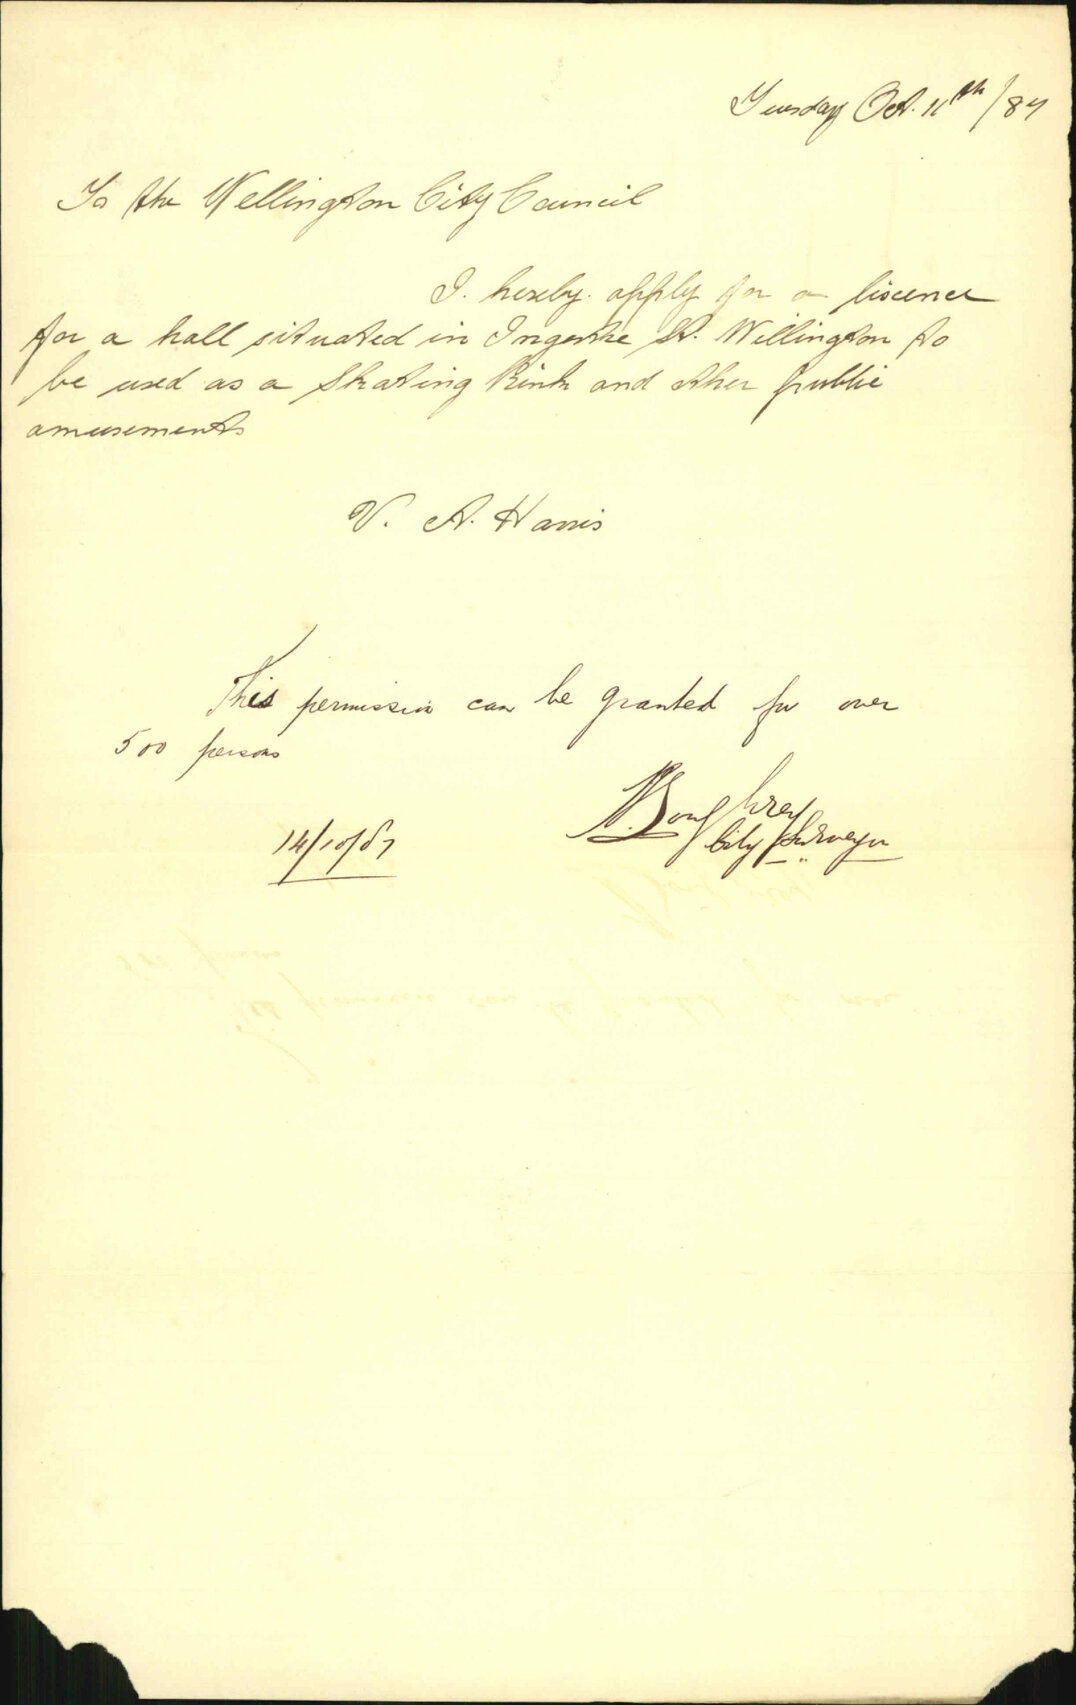 Tuesday Oct. 11th/87
To the Wellington City Council
I. hereby. apply for a liscence
for a hall situated in Ingestre St. Wellington to
be used as a Skating Rink and other public
amusements
V. A. Harris
This permission can be granted for over
500 persons
City Surveyor
14/10/87